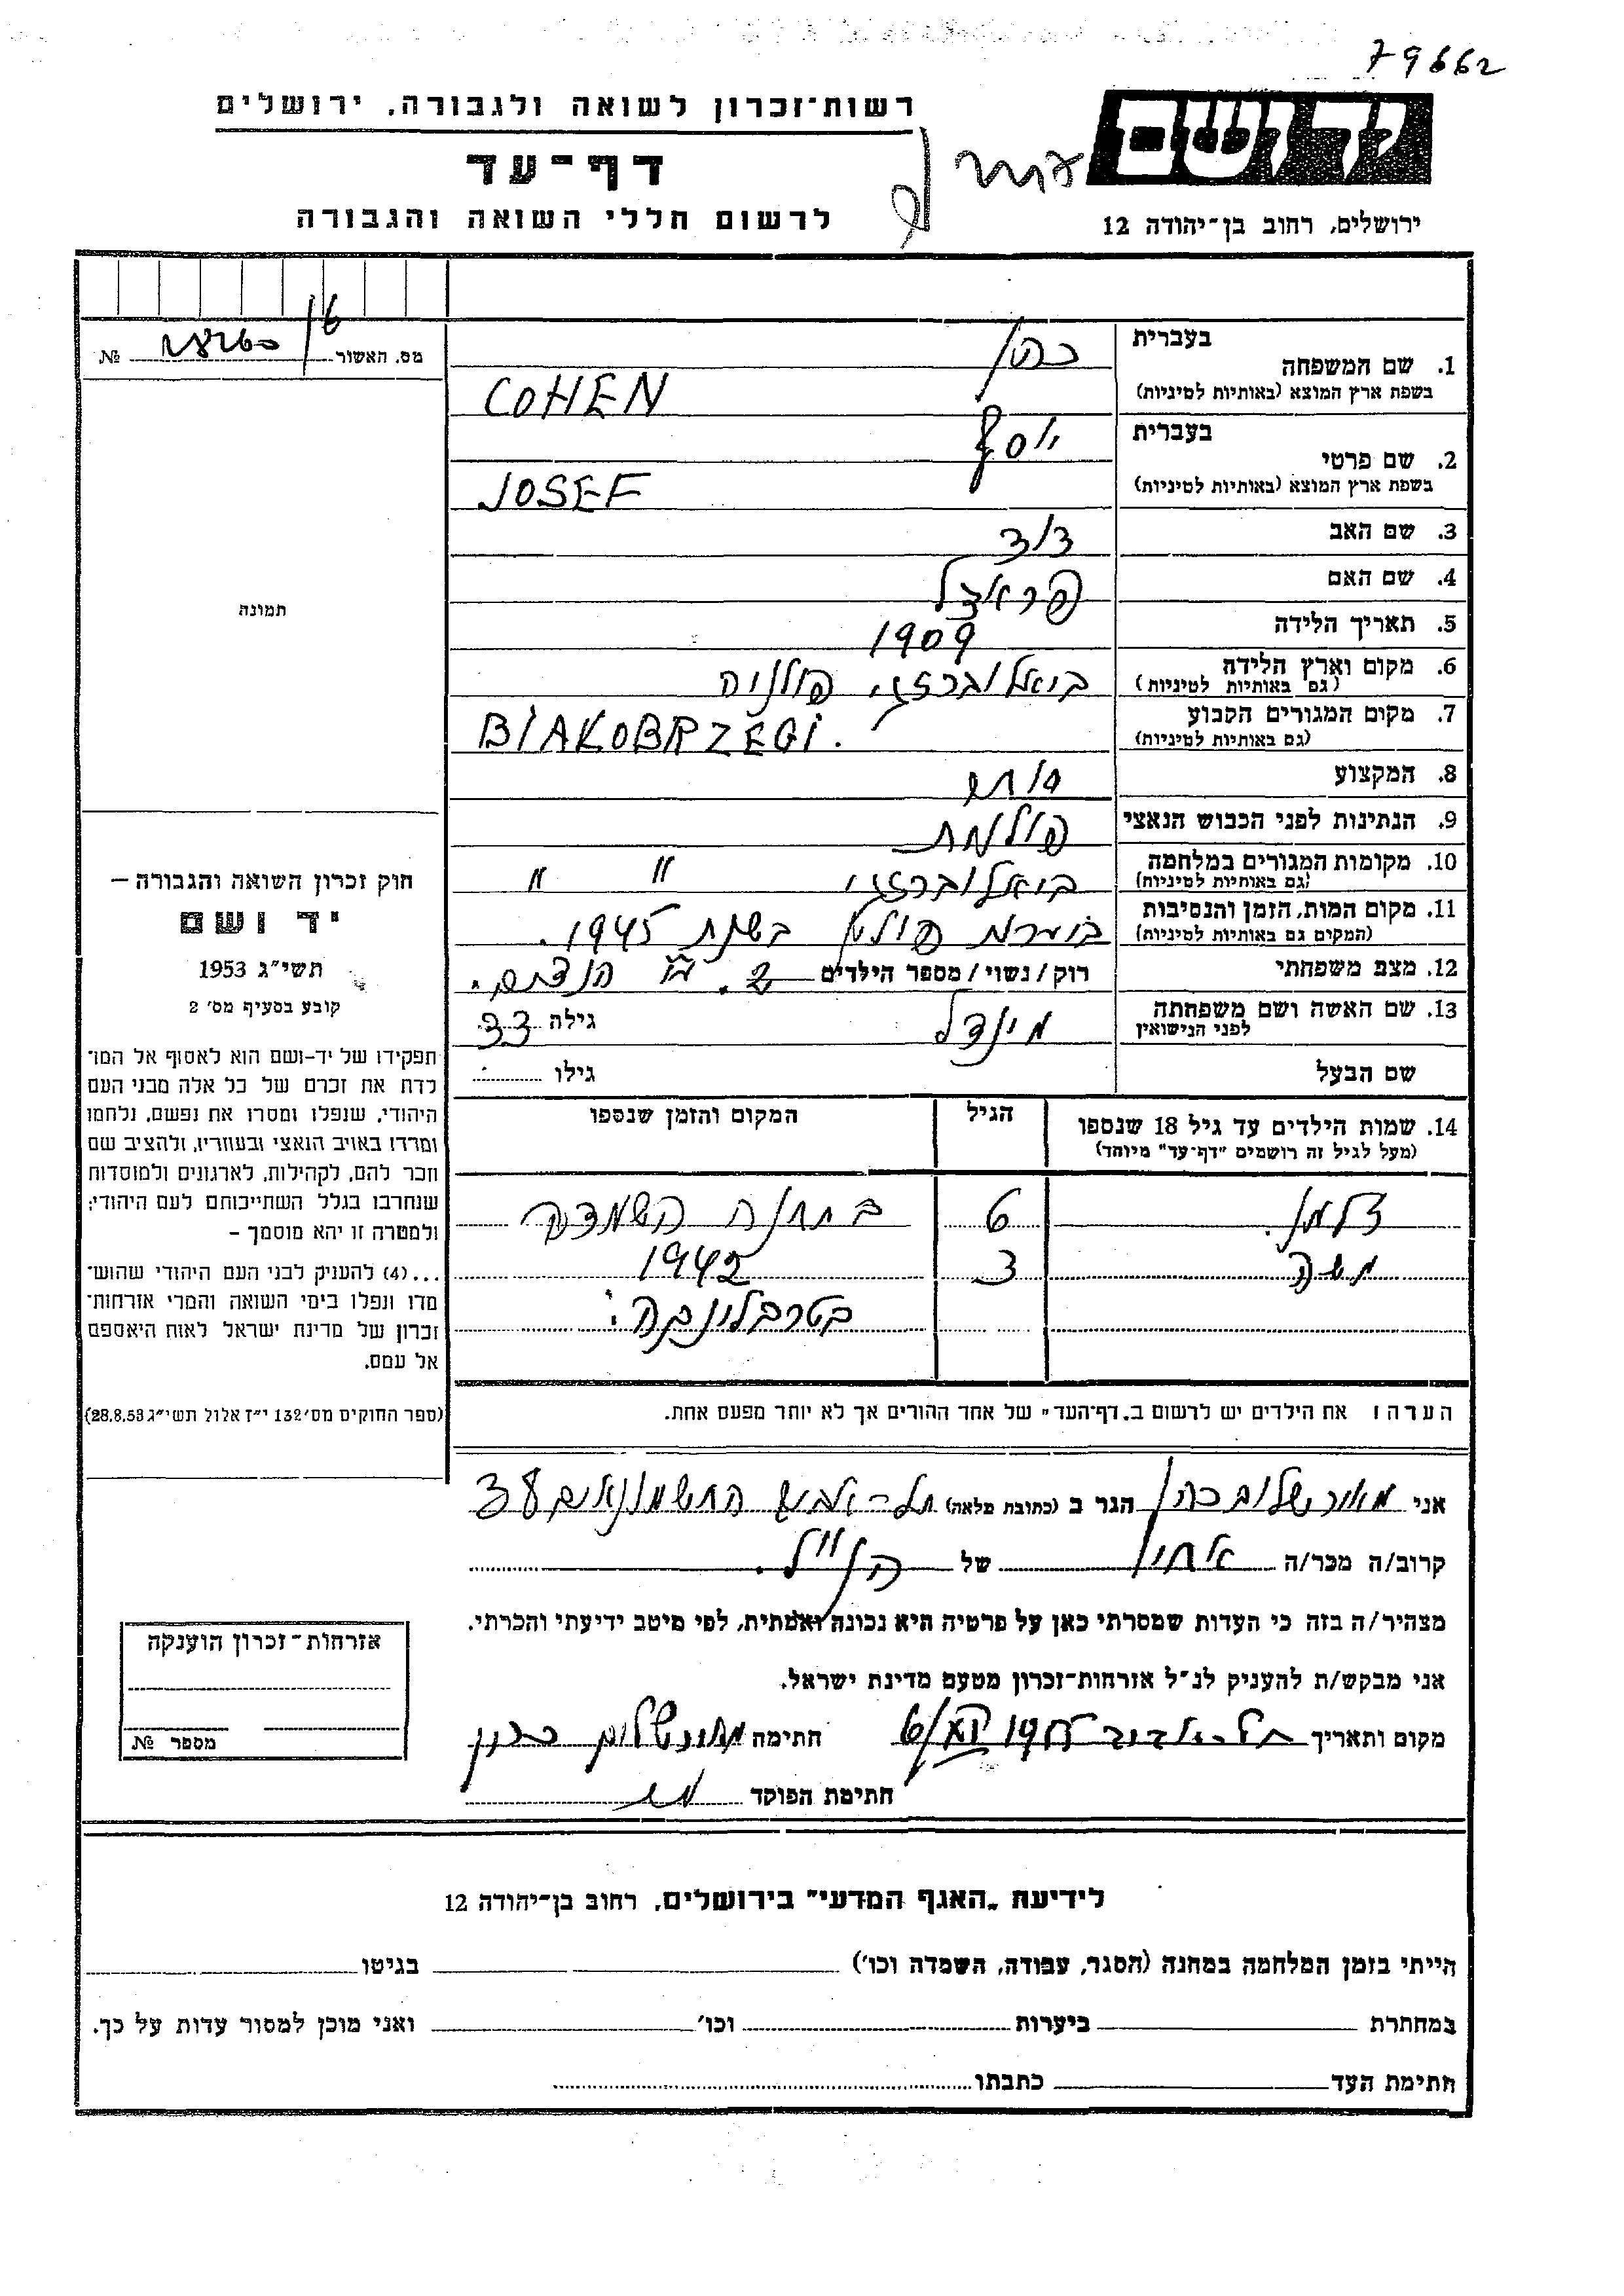 79662
רשות־זכרון לשואה ולגבורה, ירושלים
יד ושם
דף־עד
לרשום חללי השואה והגבורה
ירושלים, רחוב בן־יהודה 12
מס. האשור № 
1. שם המשפחה
בעברית כהן
בשפת ארץ המוצא (באותיות לטיניות) COHEN
2. שם פרטי
בעברית יוסף
בשפת ארץ המוצא (באותיות לטיניות) JOSEF
3. שם האב דוד
4. שם האם
תמונה
5. תאריך הלידה 1909
6. מקום וארץ הלידה ביאלוברזגי, פולניה
(גם באותיות לטיניות)
7. מקום המגורים הקבוע BIAKOBRZEGI.
(גם באותיות לטיניות)
8. המקצוע סוחר
9. הנתינות לפני הכבוש הנאצי
10. מקומות המגורים במלחמה ביאלוברזגי " "
(גם באותיות לטיניות)
11. מקום המות, הזמן והנסיבות בשנת 1945.
(המקום גם באותיות לטיניות)
12. מצב משפחתי רוק/נשוי/מספר הילדים 2.
13. שם האשה ושם משפחתה מינדל גילה 33
לפני הנישואין
שם הבעל גילו
14. שמות הילדים עד גיל 18 שנספו הגיל המקום והזמן שנספו
(מעל לגיל זה רושמים "דף־עד" מיוחד)
זלמן. 6 במחנה השמדה
משה 3 1942
בטרבלינקה.
הערה: את הילדים יש לרשום ב„דף־העד" של אחד ההורים אך לא יותר מפעם אחת.
חוק זכרון השואה והגבורה –
יד ושם
תשי"ג 1953
קובע בסעיף מס' 2
תפקידו של יד-ושם הוא לאסוף אל המו־
לדת את זכרם של כל אלה מבני העם
היהודי, שנפלו ומסרו את נפשם, נלחמו
ומרדו באויב הנאצי ובעוזריו, ולהציב שם
וזכר להם, לקהילות, לארגונים ולמוסדות
שנחרבו בגלל השתייכותם לעם היהודי;
ולמטרה זו יהא מוסמך –
...(4) להעניק לבני העם היהודי שהוש־
מדו ונפלו בימי השואה והמרי אזרחות־
זכרון של מדינת ישראל לאות היאספם
אל עמם.
(ספר החוקים מס' 132 י"ז אלול תשי"ג 28.8.53)
אני כהן הגר ב (כתובת מלאה) תל-אביב החשמונאים
קרוב/ה מכר/ה אחיו של הנ"ל.
מצהיר/ה בזה כי העדות שמסרתי כאן על פרטיה היא נכונה ואמתית, לפי מיטב ידיעתי והכרתי.
אני מבקש/ת להעניק לנ"ל אזרחות־זכרון מטעם מדינת ישראל.
מקום ותאריך תל-אביב חתימה
חתימת הפוקד
אזרחות־זכרון הוענקה
מספר №
לידיעת „האגף המדעי" בירושלים, רחוב בן־יהודה 12
הייתי בזמן המלחמה במחנה (הסגר, עבודה, השמדה וכו') בגיטו
במחתרת ביערות וכו' ואני מוכן למסור עדות על כך.
חתימת העד כתבתו